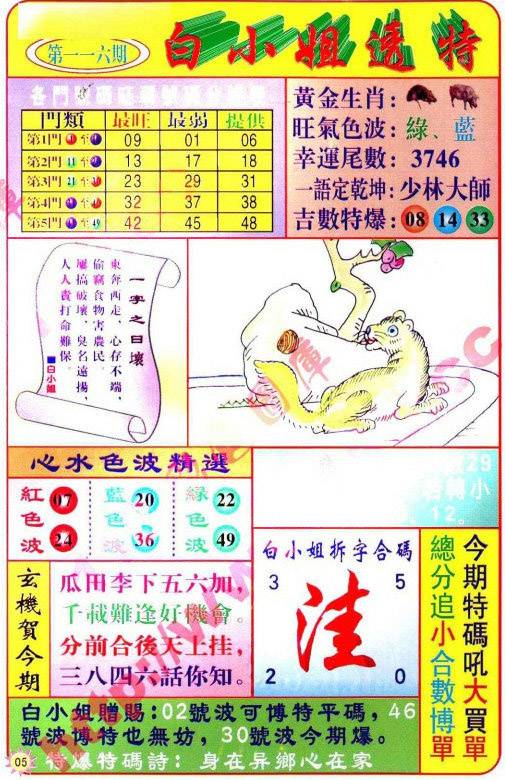 第一一六期
白小姐透特
各門
門類 最旺 最弱 提供
第1門 至 09 01 06
第2門 11 至 13 17 18
第3門 21 至 23 29 31
第4門 至 32 37 38
第5門 至 49 42 45 48
黃金生肖：
旺氣色波：綠、藍
幸運尾數：3746
一語定乾坤：少林大師
吉數特爆：08 14 33
一字之曰壞
東奔西走、心存不端，
偷竊食物害農民。
屢搞破壞、臭名遠揚，
人人責打命難保。
■白小姐
心水色波精選
紅色波 07 24
藍色波 20 36
綠色波 22 49
29
若轉小
12。
玄機賀今期
瓜田李下五六加，
千載難逢好機會。
分前合後天上掛，
三八四六話你知。
白小姐拆字合碼
3 5
洼
2 0
今期特碼吼大買單
總分追小合數博單
白小姐贈賜：02號波可博特平碼，46
號波博特也無妨，30號波今期爆。
05 特爆特碼詩：身在异鄉心在家